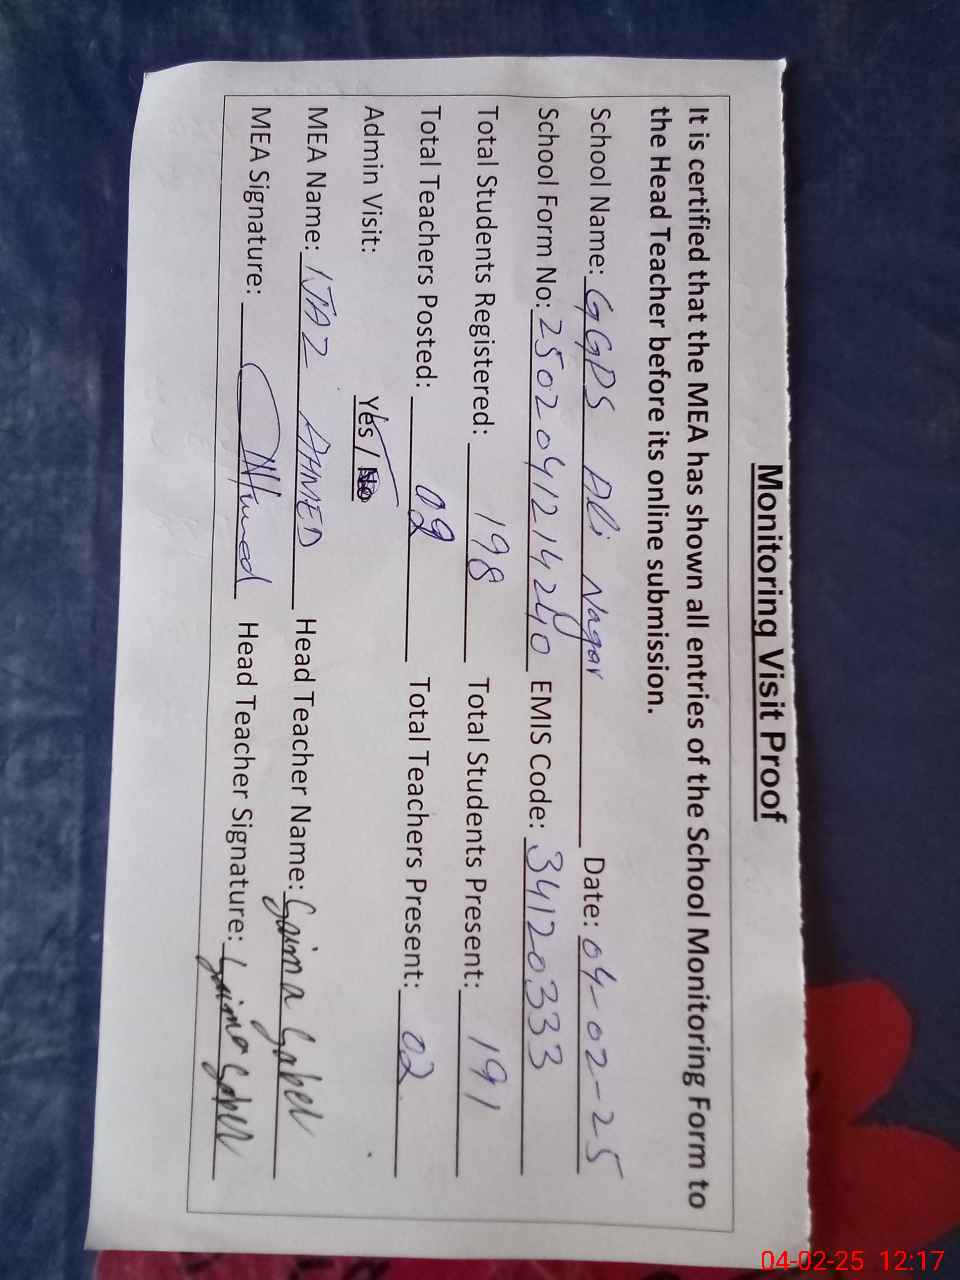 Monitoring Visit Proof
It is certified that the MEA has shown all entries of the School Monitoring Form to
the Head Teacher before its online submission.
School Name: GGPS Ali Nagar Date: 04-02-25
School Form No: 25020412142440 EMIS Code: 34120333
Total Students Registered: 198 Total Students Present: 191
Total Teachers Posted: 02 Total Teachers Present: 02
Admin Visit: Yes / No
MEA Name: IJAZ AHMED Head Teacher Name:
MEA Signature: Ahmed Head Teacher Signature:
04-02-25 12:17